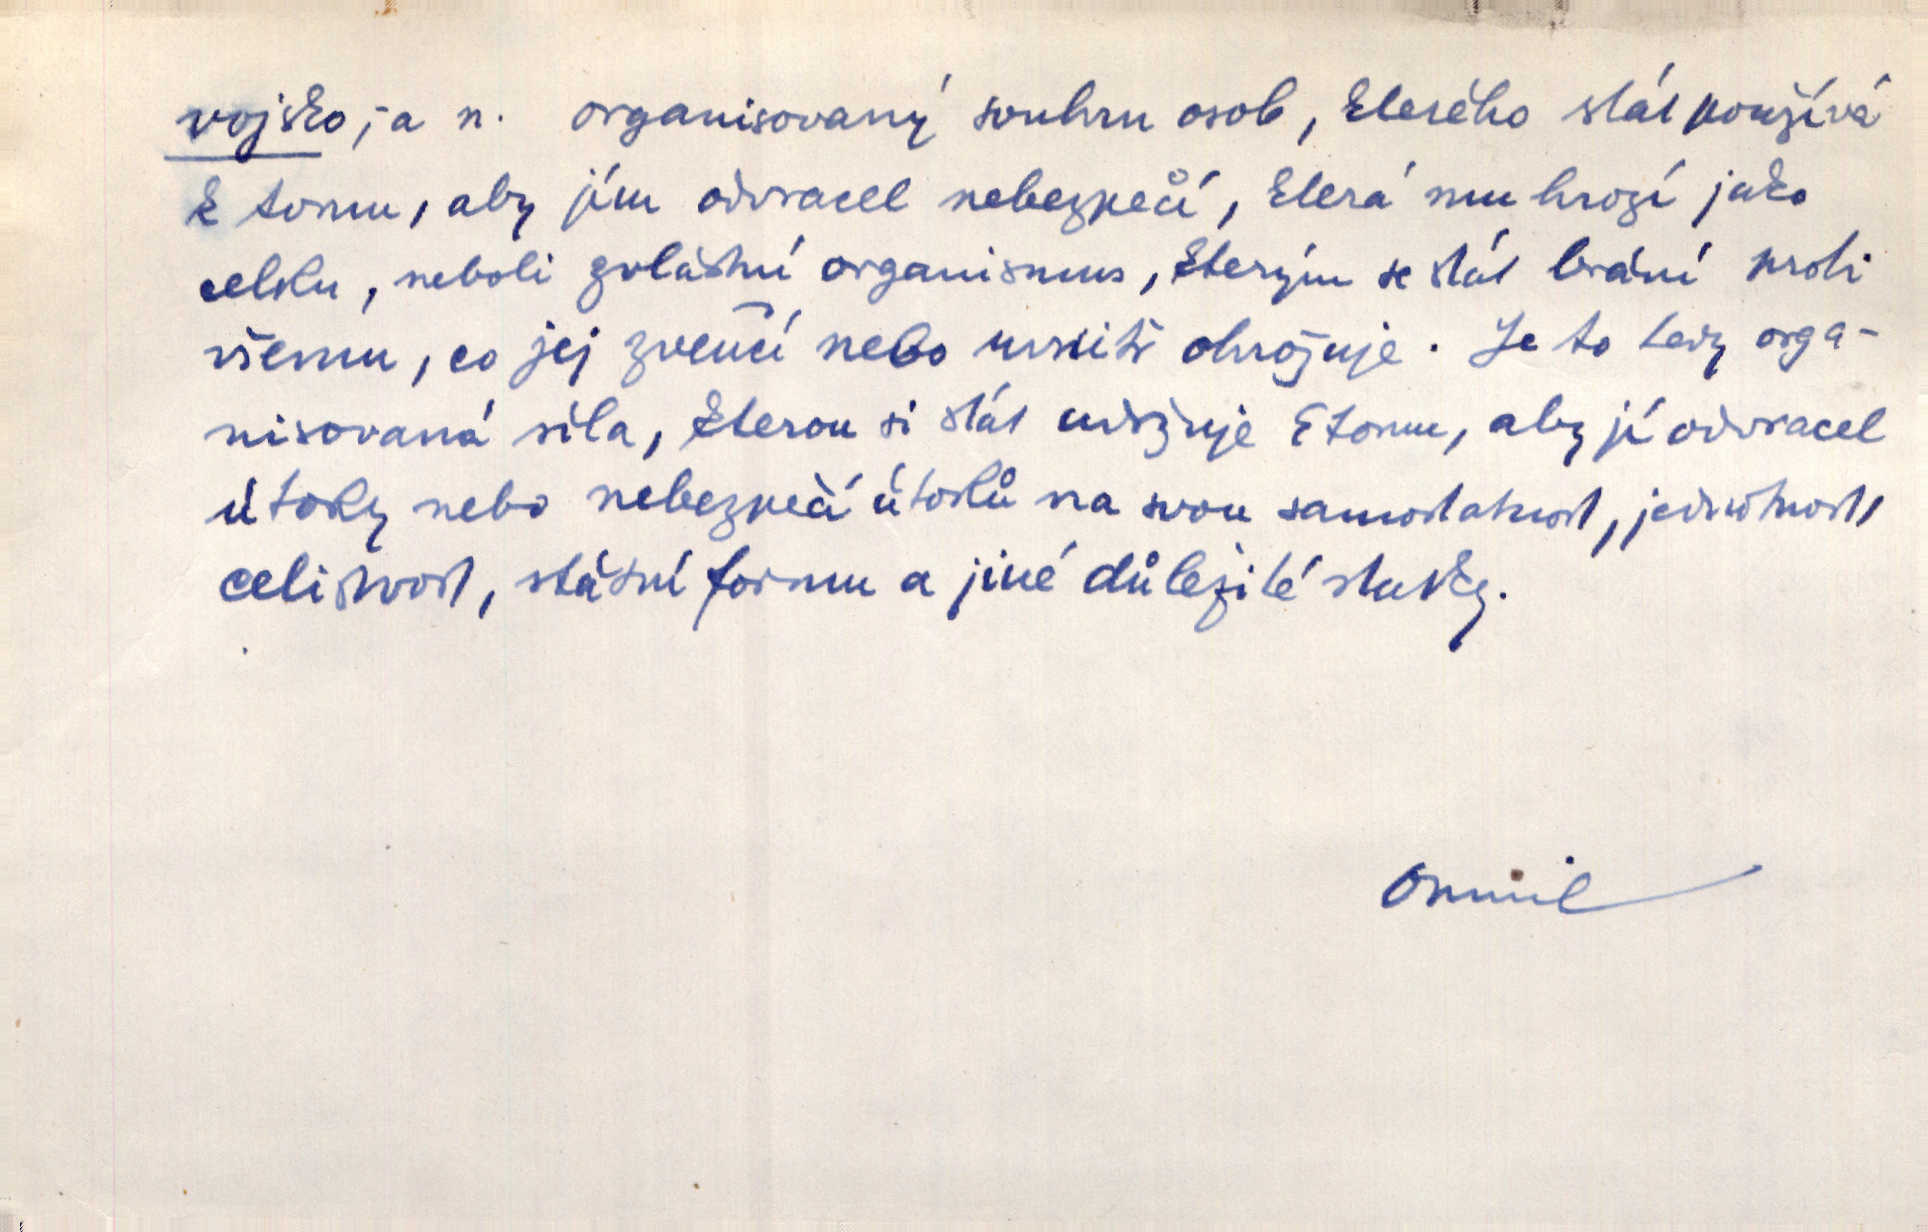 vojsko, -a n. organisovaný souhrn osob, kterého stát používá
k tomu, aby jím odvracel nebezpečí, která mu hrozí jako
celku, neboli zvláštní organismus, kterým se stát brání proti
všemu, co jej zvenčí nebo uvnitř ohrožuje. Je to tedy orga-
nisovaná síla, kterou si stát udržuje k tomu, aby jí odvracel
útoky nebo nebezpečí útoků na svou samostatnost, jednotnost,
celistvost, státní formu a jiné důležité statky.